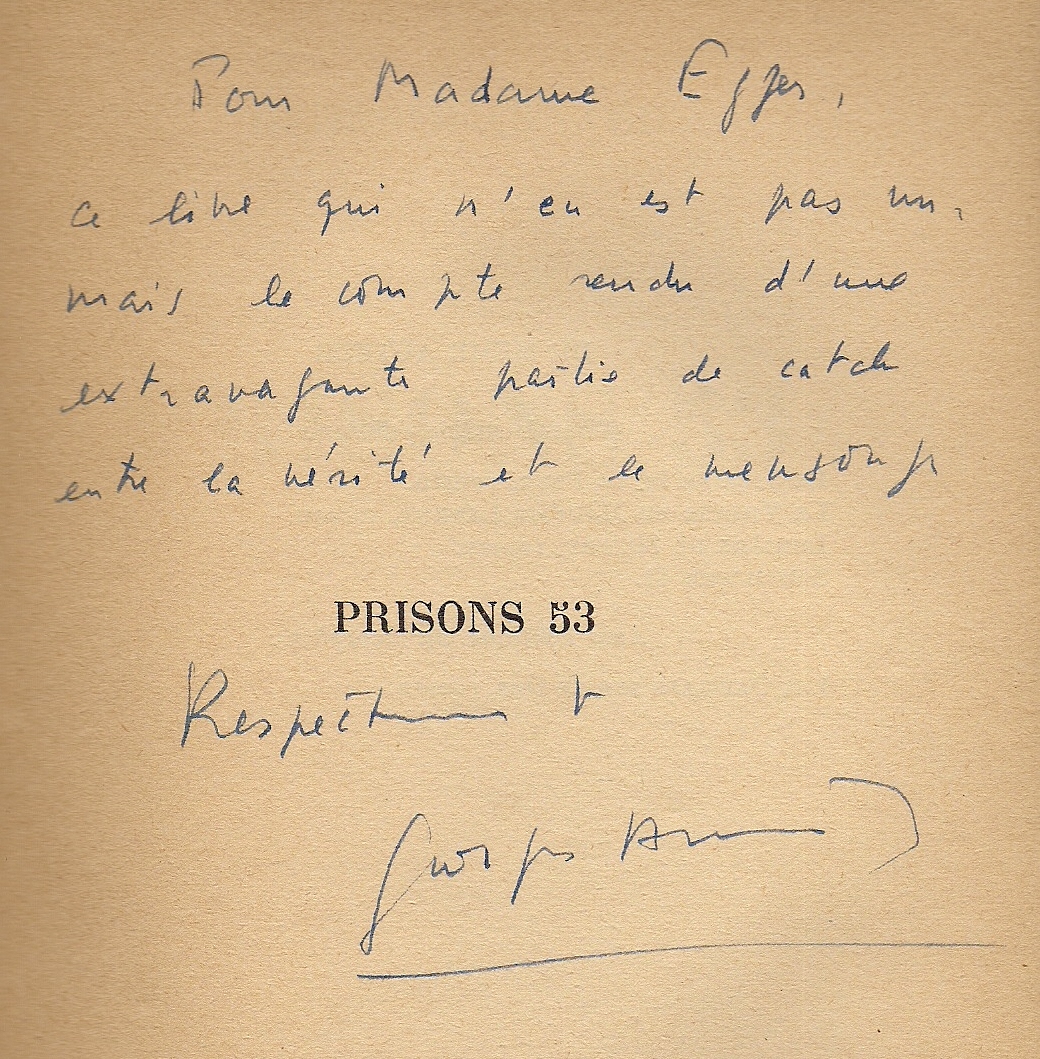 Pour Madame Egger,
ce livre qui n'en est pas un,
mais le compte rendu d'une
extravagante partie de catch
entre la vérité et le mensonge
PRISONS 53
Respectueusement
Georges Arnaud